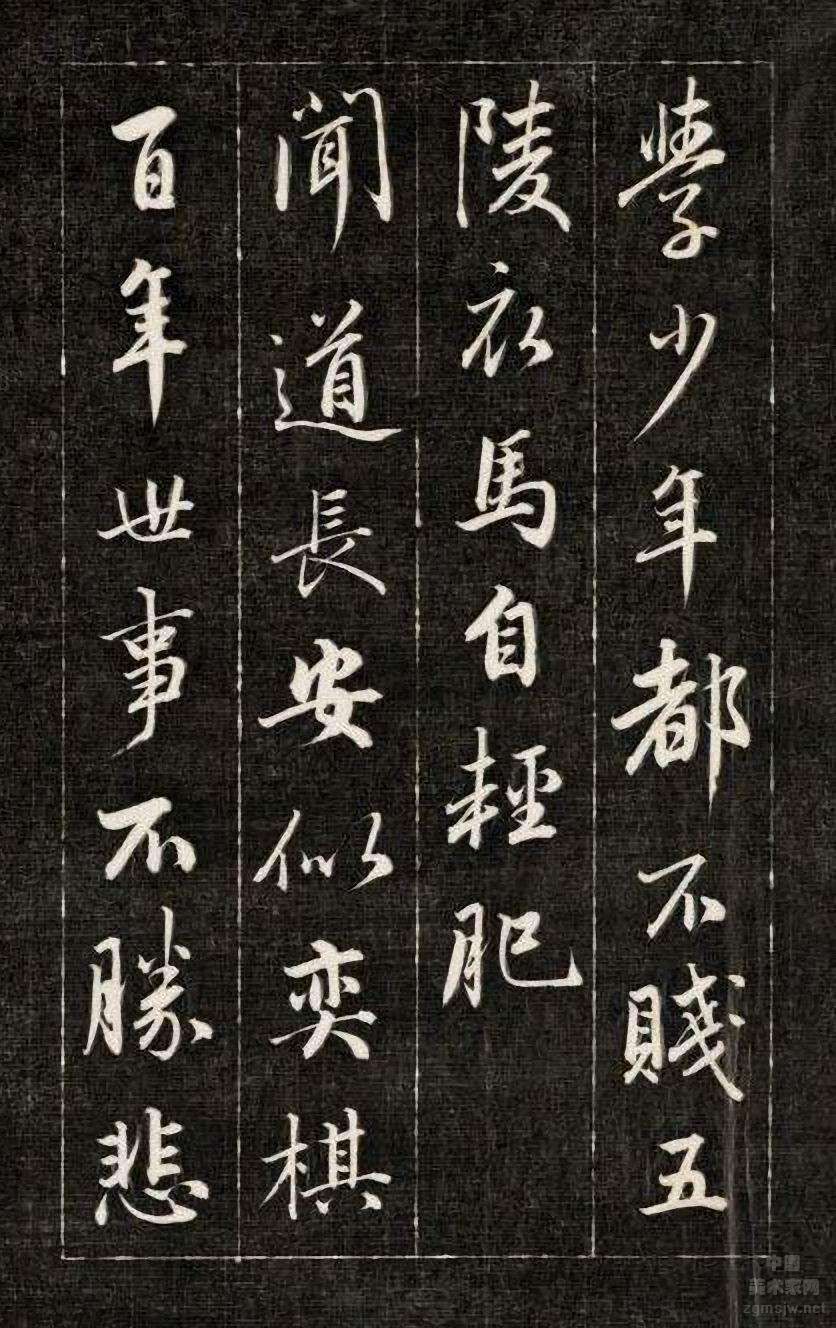 學少年都不賤五
陵衣馬自輕肥
聞道長安似奕棋
百年世事不勝悲
中国
美术家网
zgmsjw.net